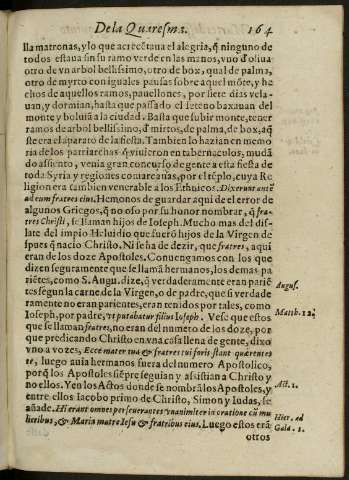 De la Quaresma. 164
lla matronas, y lo que acrecētaua el alegria, q̃ ninguno de
todos estaua sin su ramo verde en las manos, vno d'oliua
otro de vn arbol bellissimo, otro de box, qual de palma,
otro de myrto con iguales pausas sobre aquel mõte, y he
chos de aquellos ramos, pauellones, por siete dias vela-
uan, y dormian, hasta que passado el seteno baxauan del
monte y boluiã a la ciudad. Basta que subir monte, tener
ramos de arbol bellissimo, d'mirtos, de palma, de box, aq̃
ste era el aparato de la fiesta. Tambien lo hazian en memo
ria de los patriarchas q̃ viuieron en tabernaculos, mudã
do assiento, venia gran concurso de gente a esta fiesta de
toda Syria y regiones comarcanas, por el tẽplo, cuya Re
ligion era tambien venerable a los Ethnicos. Dixerunt autẽ
ad eum fratres eius. Hemonos de guardar aqui de el error de
algunos Griegos, q̃ no oso por su honor nombrar, q̃ fra-
tres Christi, se llaman hijos de Ioseph. Mucho mas del dis-
late del impio Heluidio que fuerõ hijos de la Virgen des
pues q̃ nacio Christo. Ni se ha de dezir, que fratres, aqui
eran de los doze Apostoles. Conuengamos con los que
dizen seguramente que se llamã hermanos, los demas pa
riẽtes, como S. Augu. dize, q̃ verdaderamente eran pariẽ
tes segun la carne de la Virgen, o de padre, que si verdade
ramente no eran parientes, eran tenidos por tales, como
Ioseph, por padre, vt putabatur filius Ioseph. Vese que estos
que se llaman fratres, no eran del numero de los doze, por
que predicando Christo en vna casa llena de gente, dixo
vno a vozes, Ecce mater tua & fratres tui foris stant quærentes
te, luego auia hermanos fuera del numero Apostolico,
porq̃ los Apostoles siẽpre seguian y assistian a Christo y
no ellos. Y en los Actos donde se nombrã los Apostoles, y
entre ellos Iacobo primo de Christo, Simon y Iudas, se
añade. Hi erant omnes perseuerantes vnanimiter in oratione cũ mu
lieribus, & Maria matre Iesu & fratribus eius. Luego estos erã
otros
Augus.
Matth. 12.
Act. 1.
Hier. ad
Gala. 1.